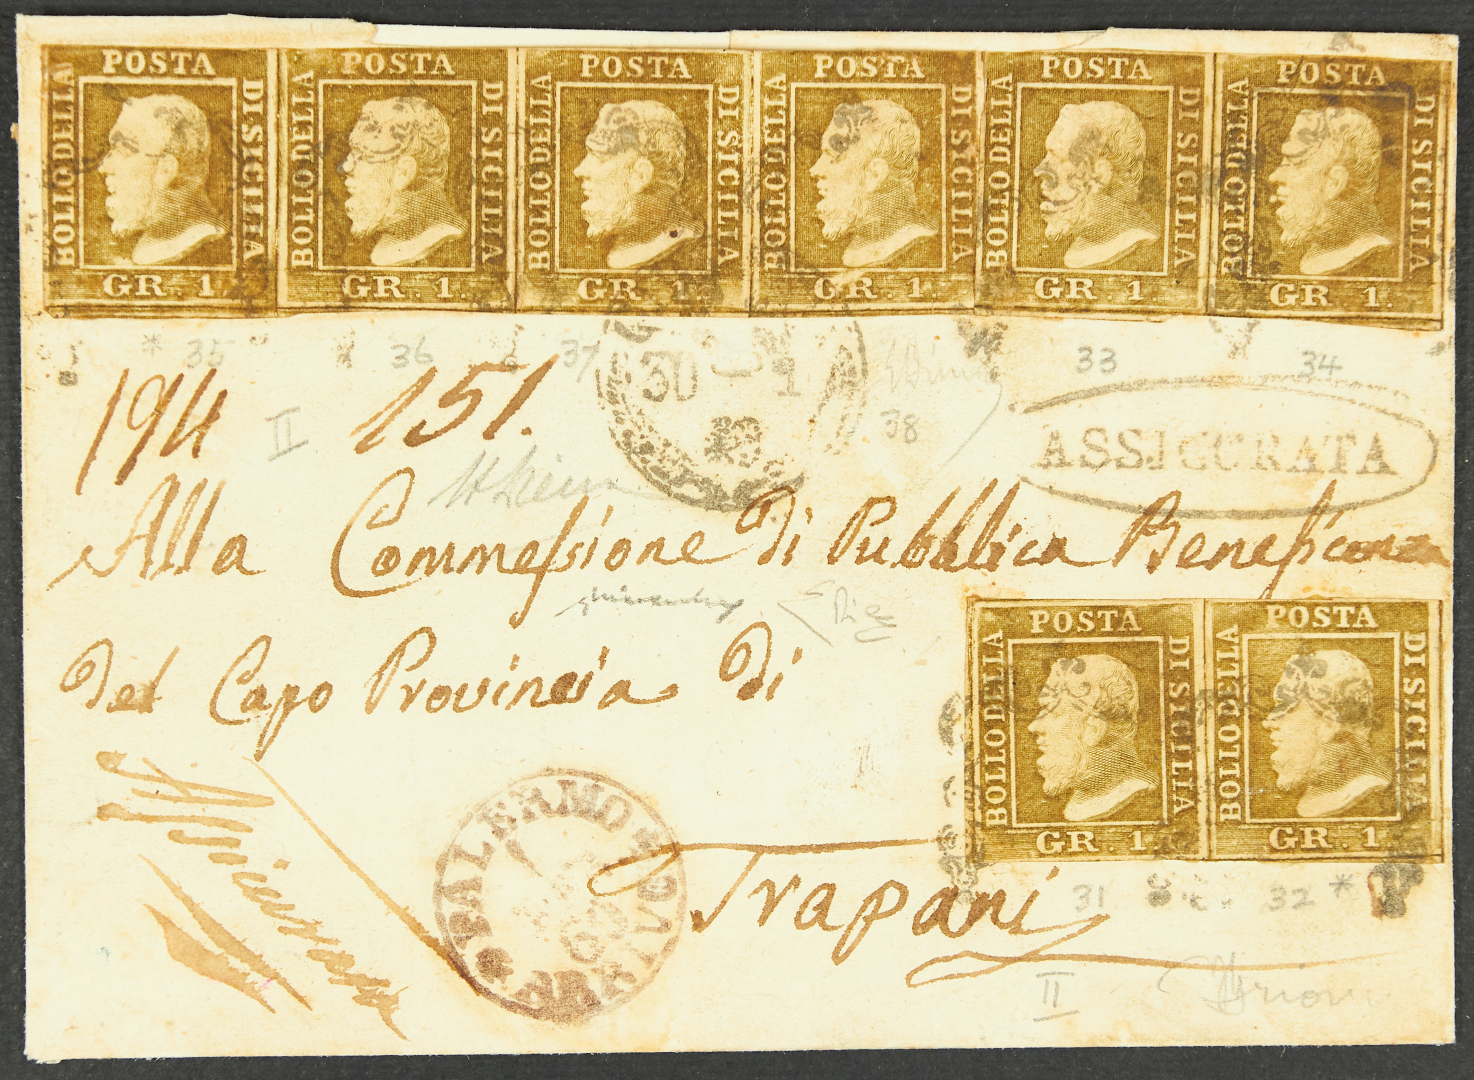 POSTA POSTA POSTA POSTA POSTA POSTA
BOLLO DELLA DI SICILIA BOLLO DELLA DI SICILIA BOLLO DELLA DI SICILIA BOLLO DELLA DI SICILIA BOLLO DELLA DI SICILIA BOLLO DELLA DI SICILIA
GR. 1. GR. 1. GR. 1. GR. 1. GR. 1. GR. 1.
* 35 36 37 33 34
30 1
38
194 II 151.
ASSICURATA
Alla Commessione Di Pubblica Beneficenza
Del Capo Provincia Di
POSTA POSTA
BOLLO DELLA DI SICILIA BOLLO DELLA DI SICILIA
GR. 1. GR. 1.
PALERMO
ARRIVO
Trapani
31 32 *
II